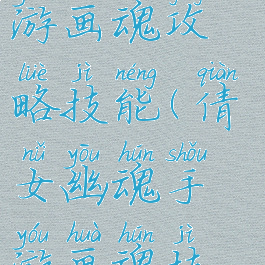 游画魂攻
lüè jì néng qiàn
略技能(倩
nǚ yōu hún shǒu
女幽魂手
yóu huà hún jì
游画魂技